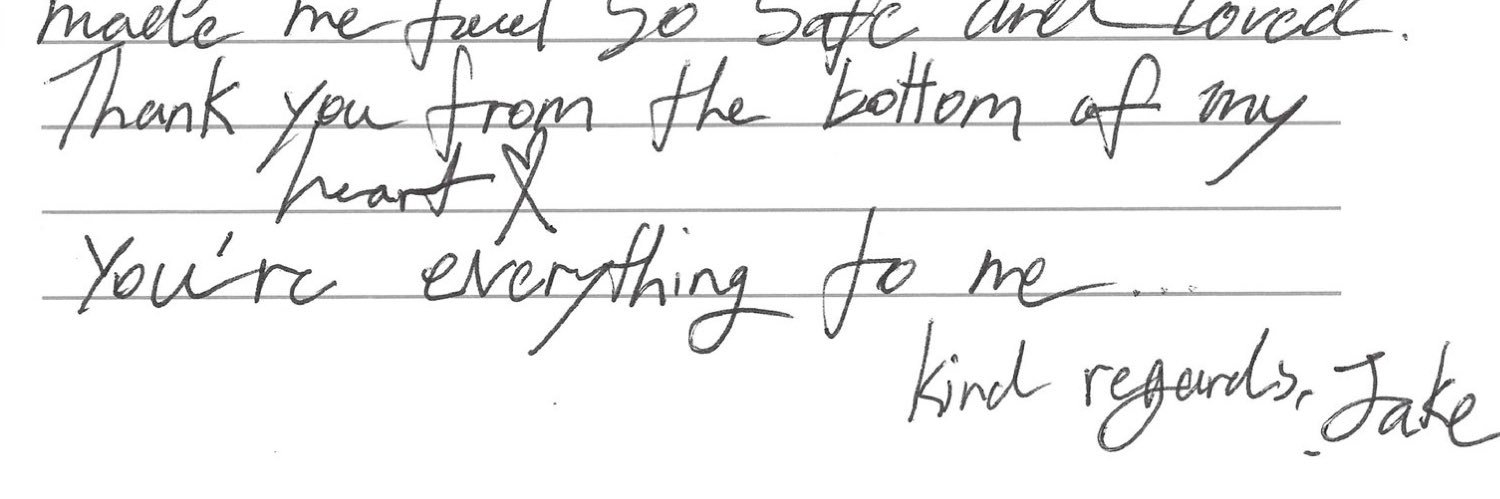 made me feel so safe and loved.
Thank you from the bottom of my
heart
You're everything to me...
kind regards, Jake